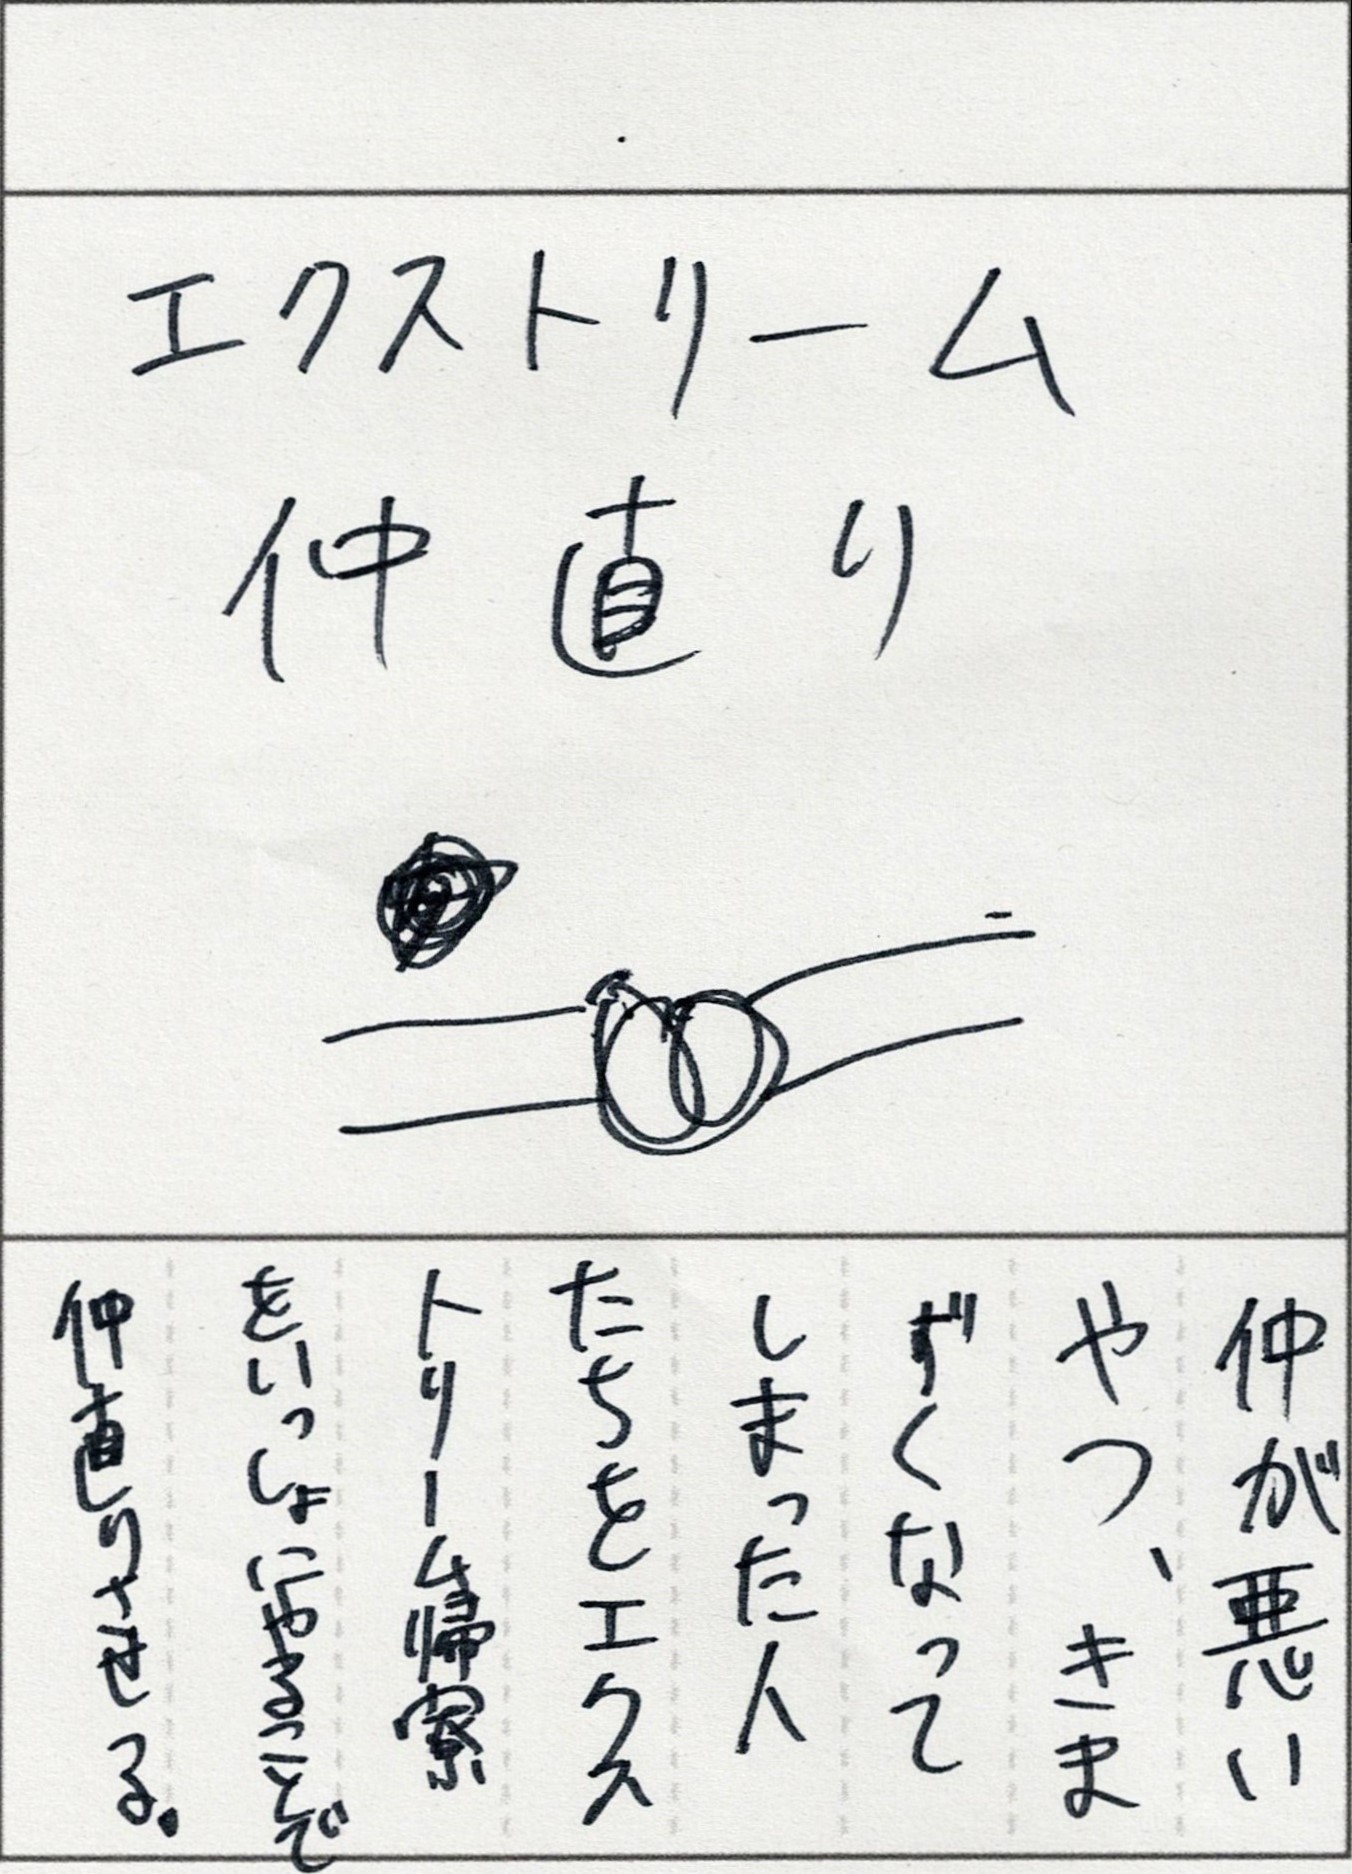 エクストリーム
仲直り
仲が悪い
やつ、きま
ずくなって
しまった人
たちをエクス
トリーム帰寮
をいっしょにやることで
仲直りさせる。